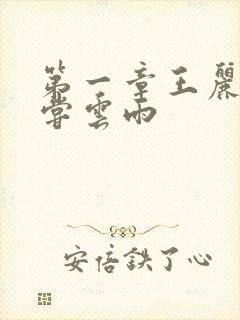 第一章王麗
嘗雲雨
安倍鉄了心